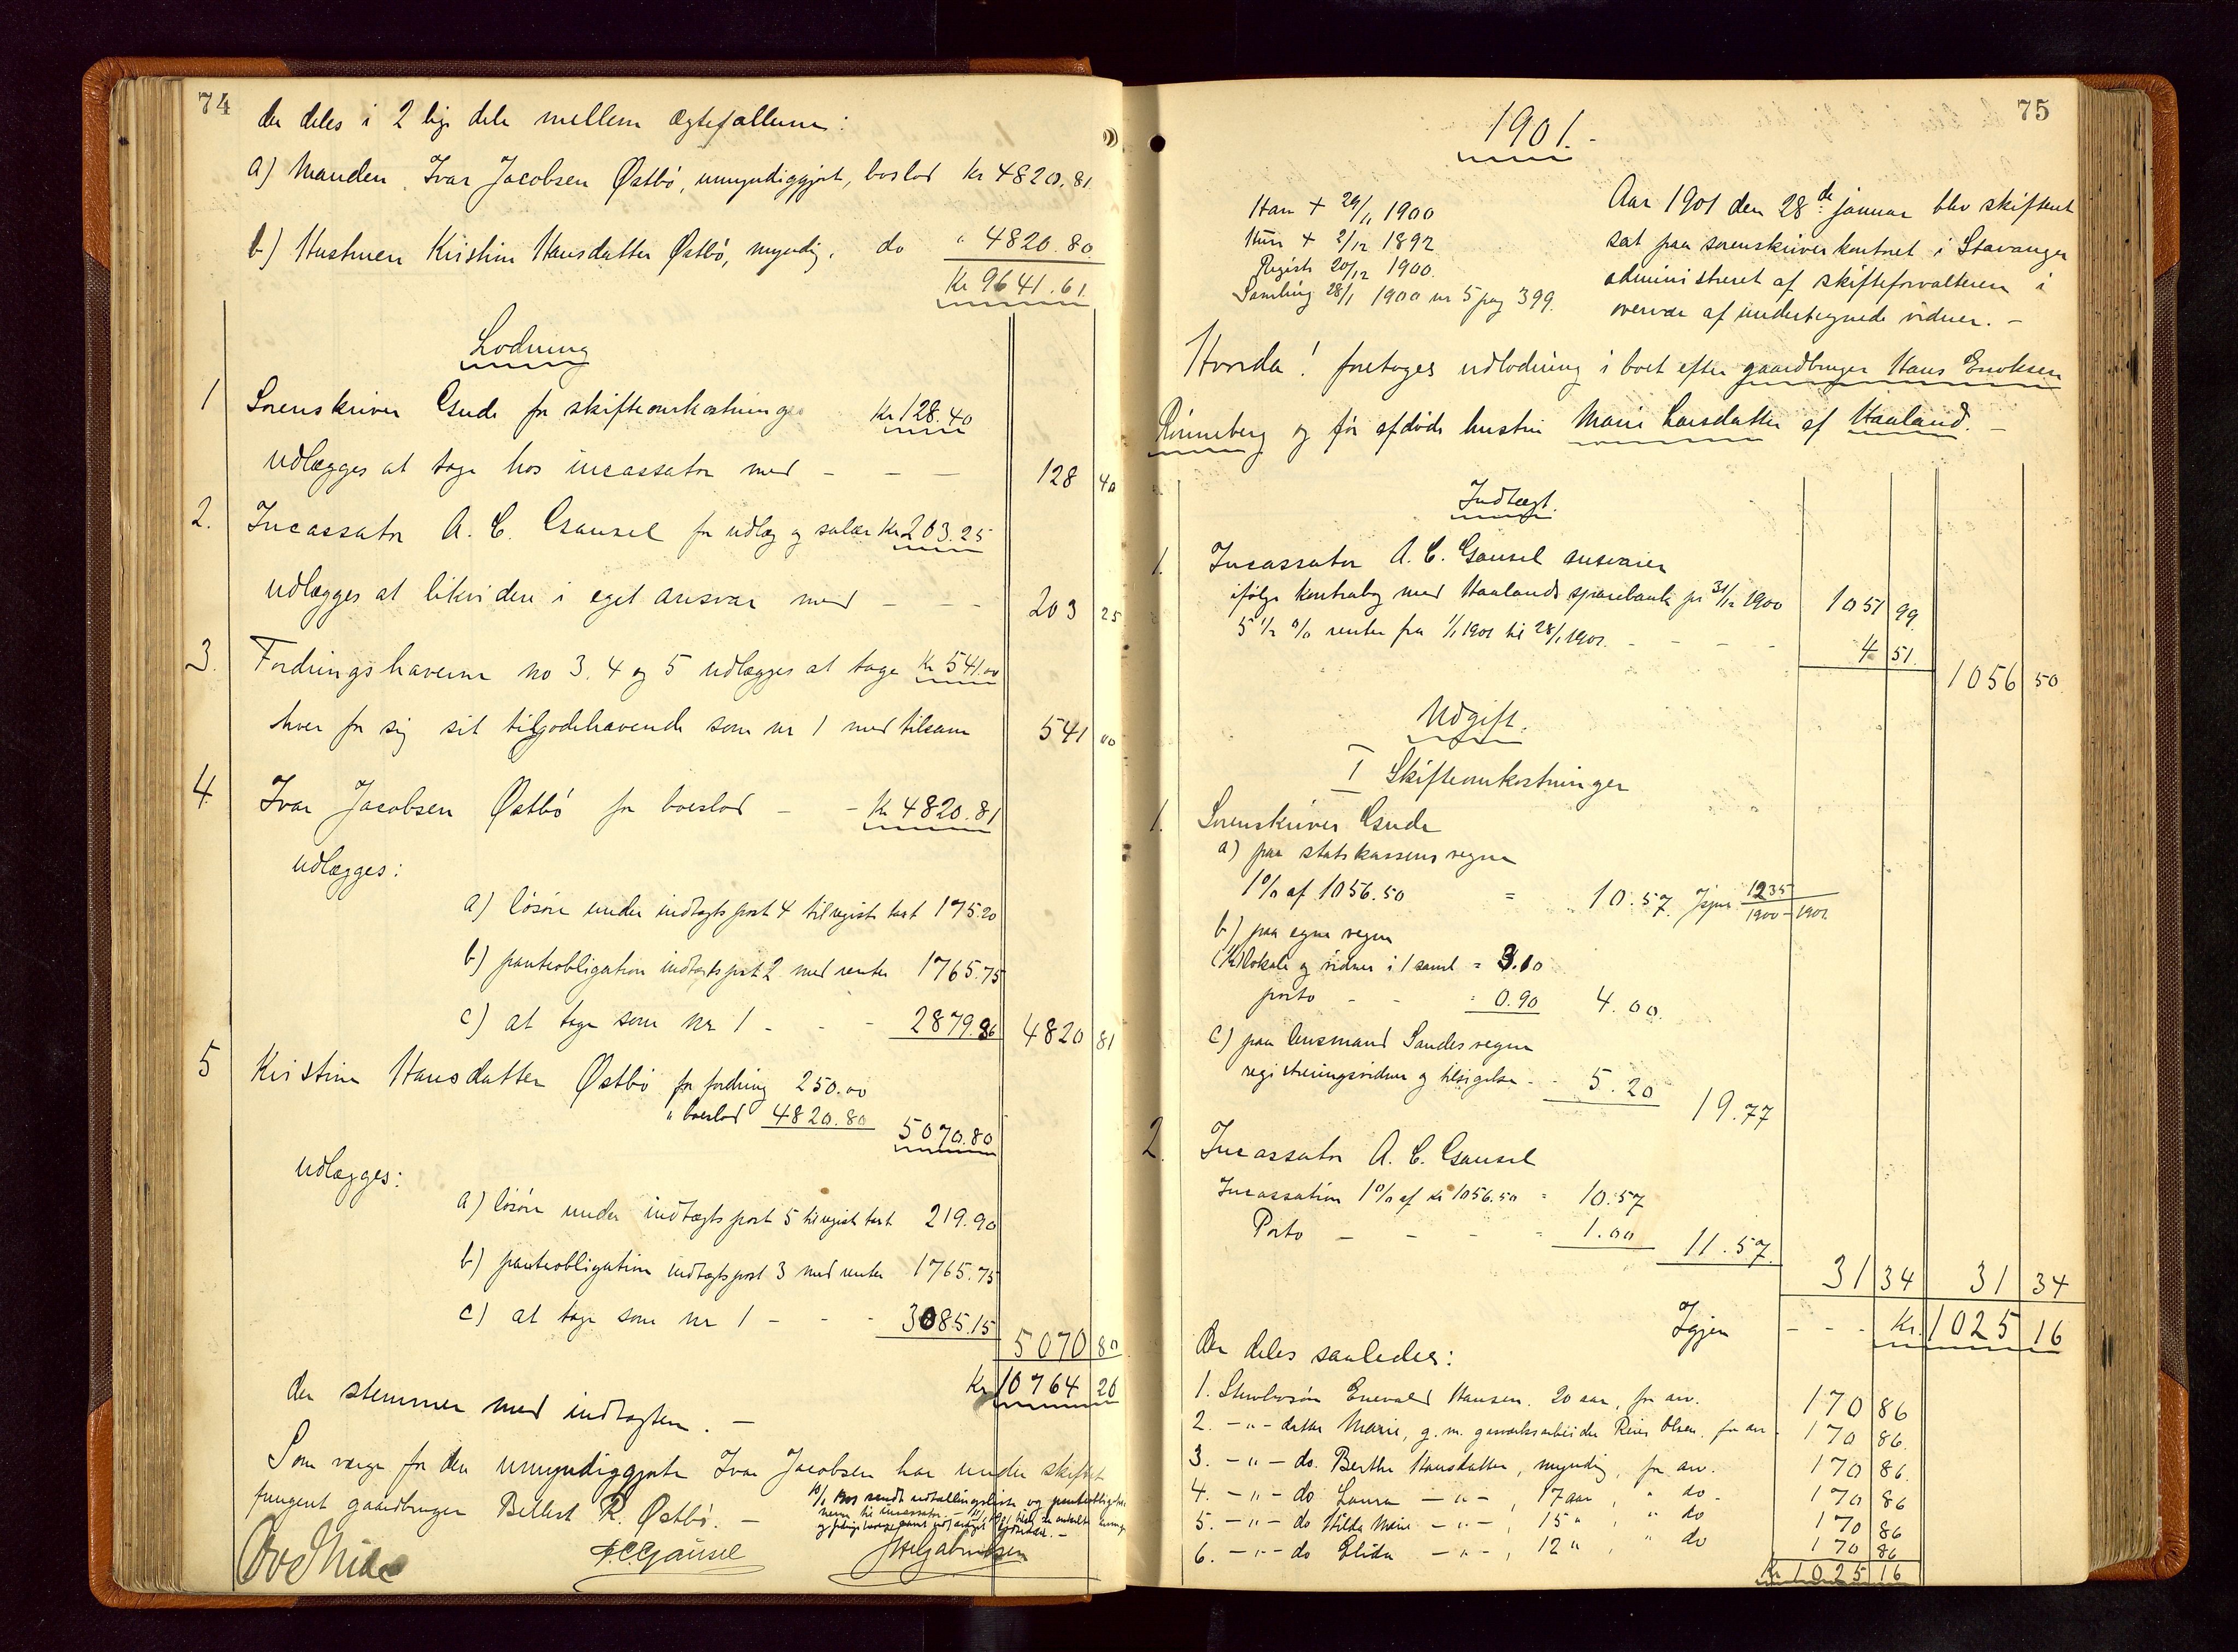 74
der deles i 2 lige dele mellem ægtefællerne:
a) Manden Ivar Jacobsen Østbø, umyndiggjort, boslod Kr 4820.81
b) Hustruen Kristine Hansdatter Østbø, myndig, do " 4820.80
Kr 9641.61
Lodning
1 Sorenskriver Gude for skifteomkostninger Kr 128.40
udlægges at tage hos incassator med - - - 128 40
2. Incassator A. C. Gausel for udlæg og salær Kr 203.25
udlægges at likvidere i eget ansvar med - - - 203 25
3. Fordringshaverne no 3, 4 og 5 udlægges at tage Kr 541.00
hver for sig sit tilgodehavende som nr 1 med tilsam 541 00
4. Ivar Jacobsen Østbø for boeslod - - Kr 4820.81
udlægges:
a) løsøre under indtægts post 4 til regist takst 175.20
b) panteobligation indtægtspost 2 med renter 1765.75
c) at tage som nr 1 - - - 2879.86 4820 81
5 Kristine Hansdatter Østbø for fordring 250.00
" boeslod 4820.80
5070.80
udlægges:
a) løsøre under indtægts post 5 til regist takst 219.90
b) panteobligation indtægtspost 3 med renter 1765.75
c) at tage som nr 1 - - - 3085.15
5070 80
Kr 10764 26
der stemmer med indtægten. -
Som værge for den umyndiggjorte Ivar Jacobsen har under skiftet
fungeret gaardbruger Bellest R. Østbø. -
sendt udtællingsliste og panteobligatio-
nerne til incassator. -
A.C.Gausel
75
1901.-
Han + 29/11 1900
Hun + 2/12 1892
Registr 20/12 1900.
Samling 28/1 1900 nr 5 pag 399.
Aar 1901 den 28de januar blev skifteret
sat paa sorenskriverkontoret i Stavanger
administreret af skifteforvalteren i
overvær af undertegnede vidner. -
Hvorda! foretoges udlodning i boet efter gaardbruger Hans Enoksen
Rønneberg og før afdøde hustru Marie Larsdatter af Haaland. -
Indtægt.
1. Incassator A. C. Gausel ansvarer
ifølge kontrabog med Haalands sparebank pr 31/12 1900 1051 99
5 1/2 % renter fra 1/1 1901 til 28/1 1901. - - - 4 51.
1056 50
Udgift.
I Skifteomkostninger
1. Sorenskriver Gude
a) paa statskassens regne
1% af 1056.50 = 10.57. Jspr 1235
1900-1901
b) paa egne regne
lokale og vidner i 1 saml = 3.10
porto - - = 0.90 4.00.
c) paa lensmand Sandes regne
registreringsvidner og tilsigelse - - 5.20 19.77
2. Incassator A. C. Gausel
Incassation 1% af kr 1056.50 = 10.57
Porto - - - = 1.00 11.57.
31 34 31 34
Igjen - - - Kr. 1025 16
Der deles saaledes:
1. Stervbosøn Enevald Hansen. 20 aar, for arv. 170 86
2. - " - datter Marie, g. m. gasværksarbeider Reier Olsen, for arv 170 86.
3. - " - do. Berthe Hansdatter, myndig, for arv. 170 86.
4. - " - do Laura - " - , 17 aar, " do - 170 86
5. - " - do Hilda Marie - " - , 15 " , " do 170 86
6. - " - do Elida - " - , 12 " , do 170 86
Kr 1025 16